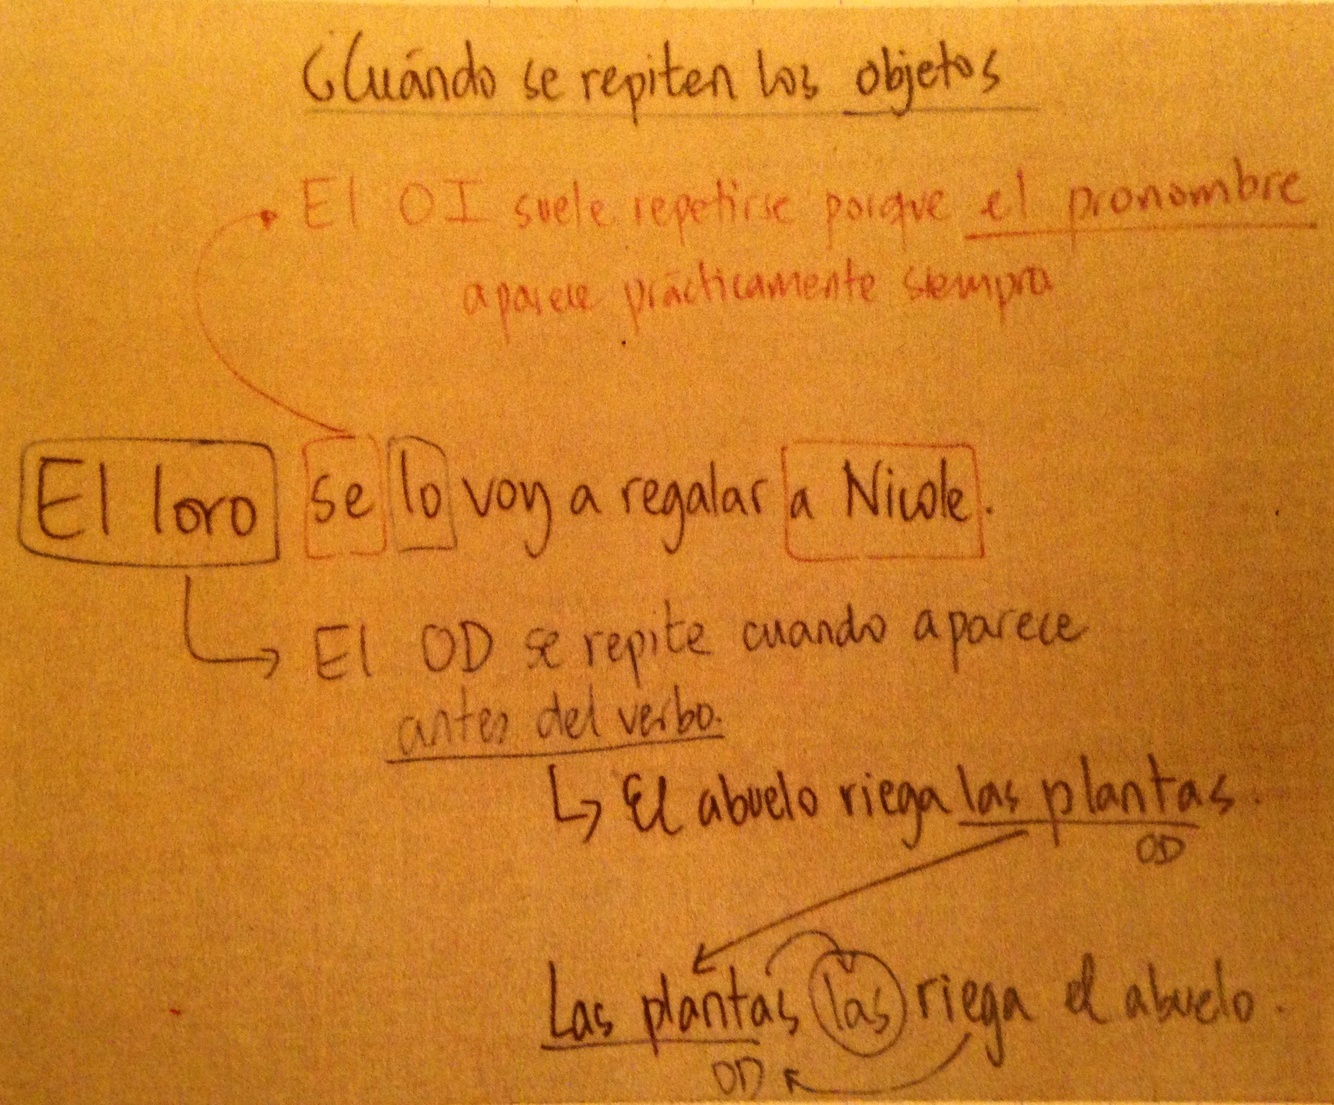 ¿Cuándo se repiten los objetos
El OI suele repetirse porque el pronombre
aparece prácticamente siempre
El loro se lo voy a regalar a Nicole.
El OD se repite cuando aparece
antes del verbo.
↳ El abuelo riega las plantas.
OD
Las plantas las riega el abuelo.
OD